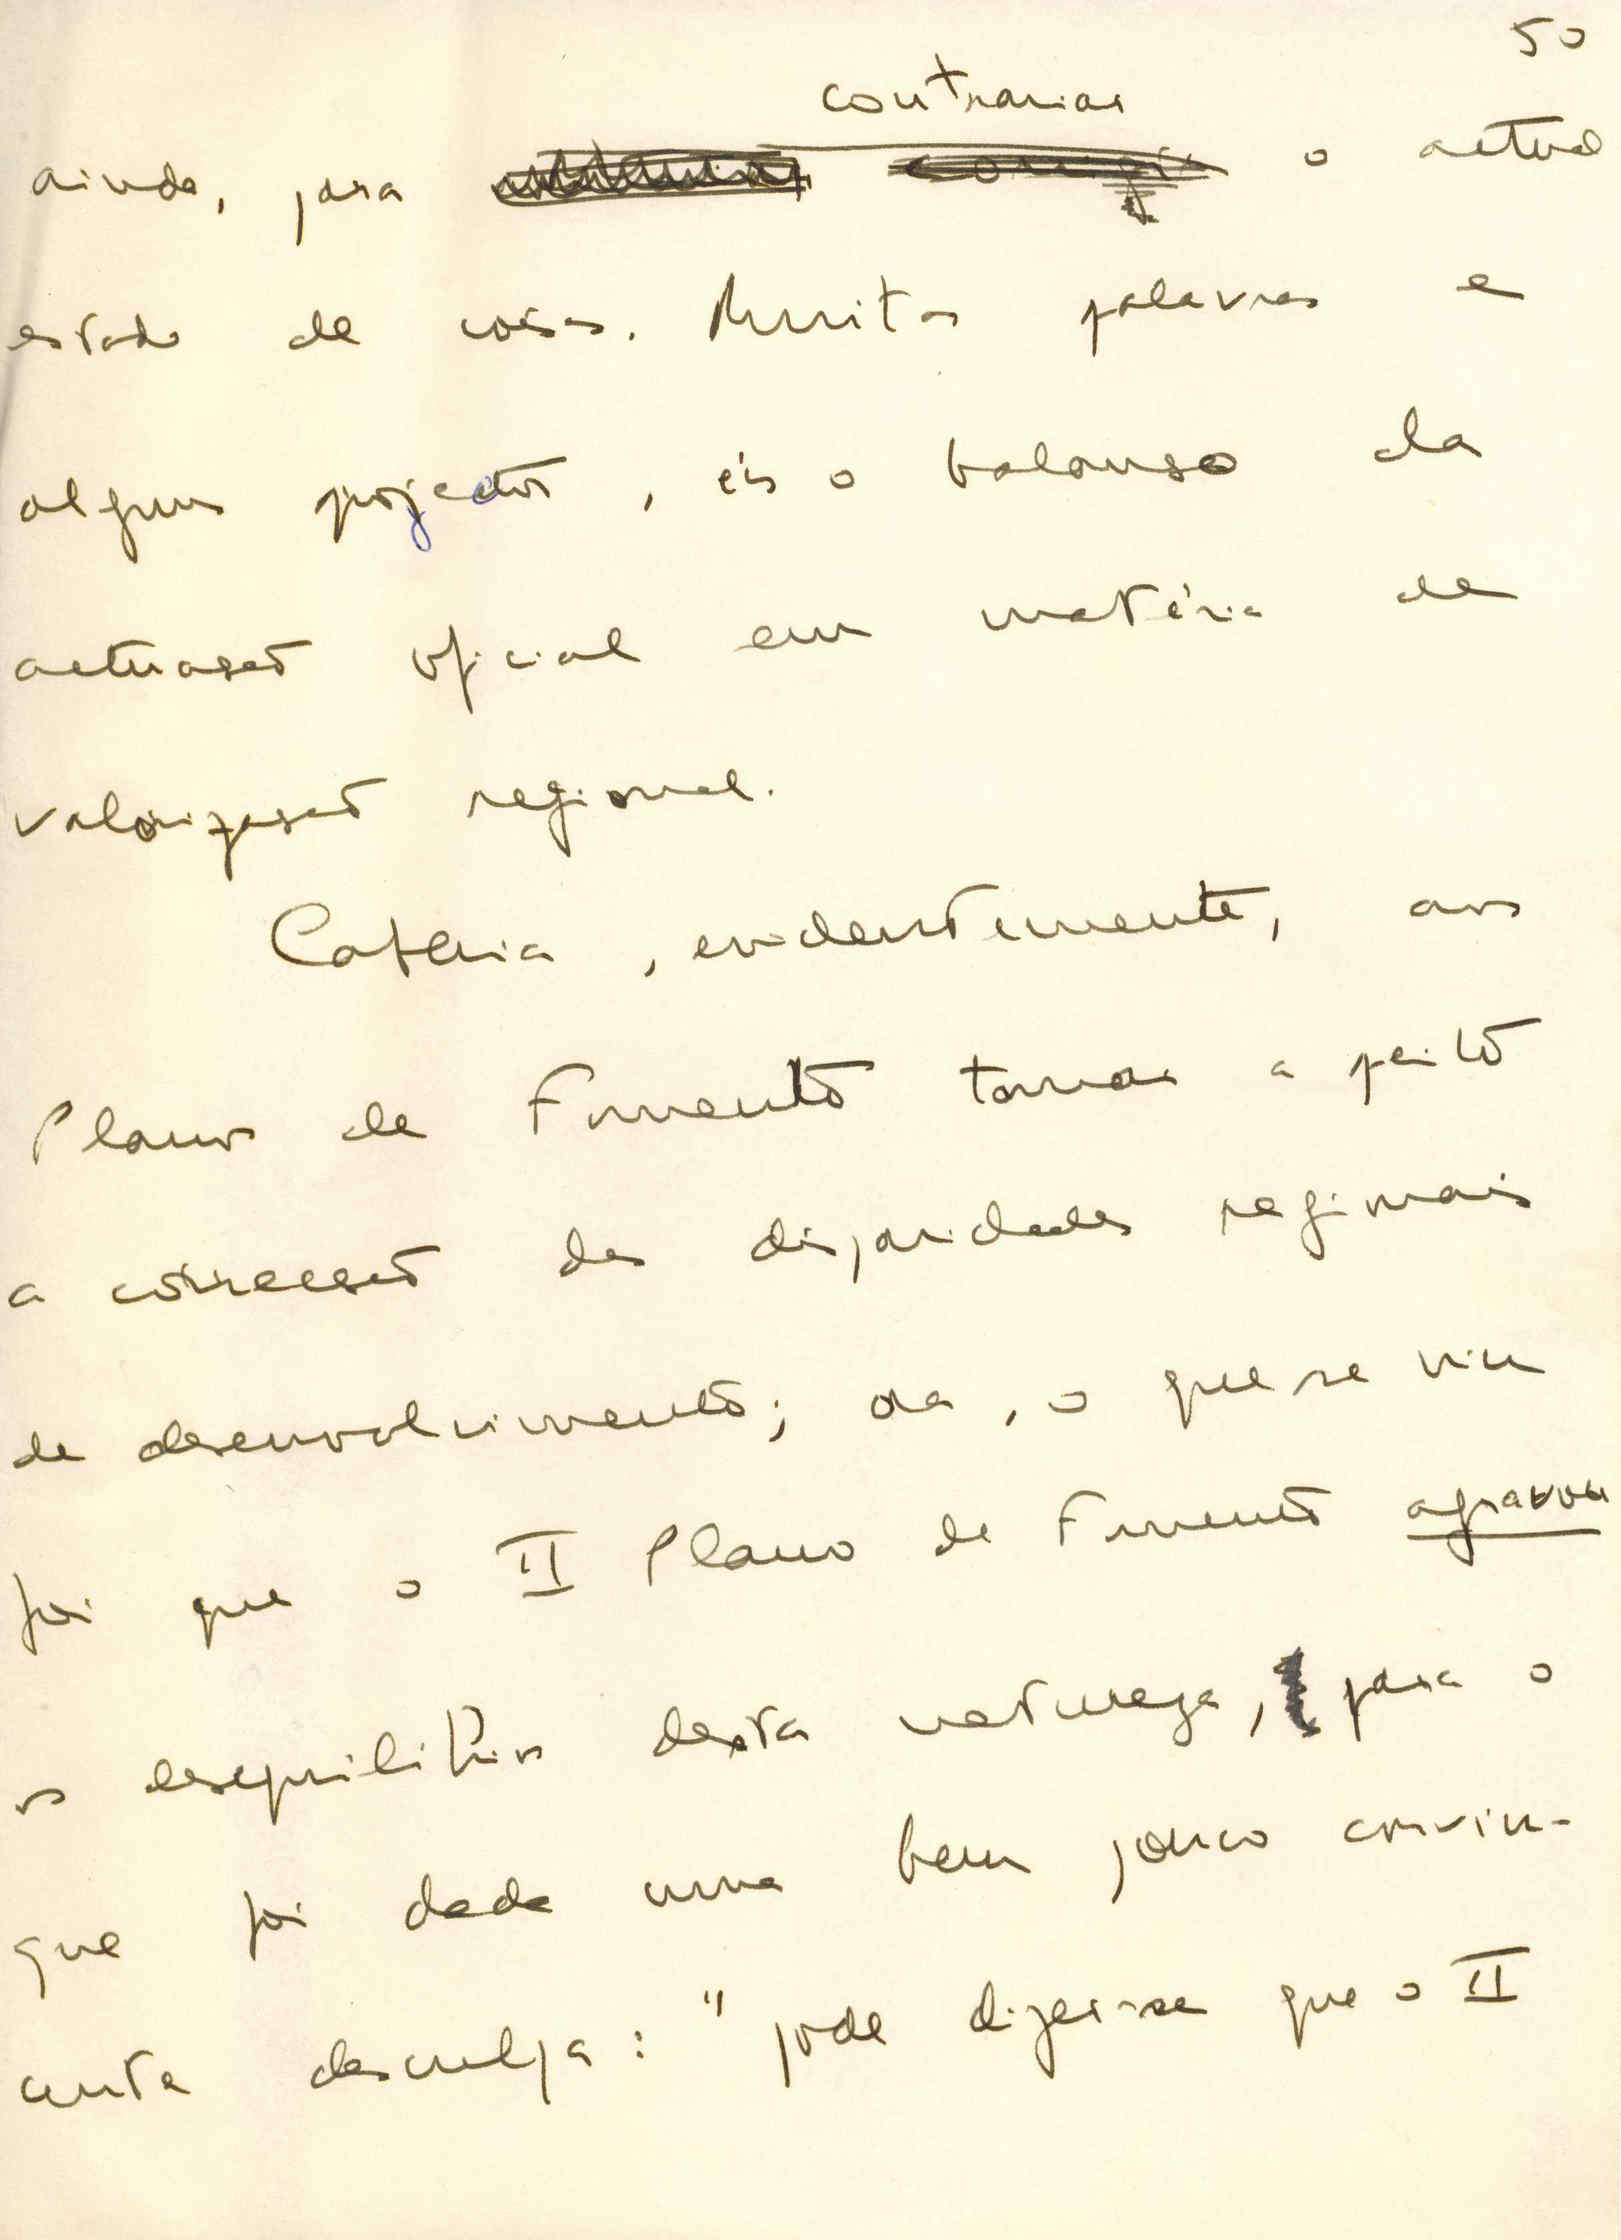 50
contrariar
ainda, para corrigir o actual
estado de coisas. Muitas palavras e
alguns projectos, eis o balanço da
actuação oficial em matéria de
valorização regional.
Caberia, evidentemente, aos
Planos de Fomento tomar a peito
a correcção das disparidades regionais
de desenvolvimento; ora, o que se viu
foi que o II Plano de Fomento agravou
os desequilíbrios desta natureza, para o
que foi dada uma bem pouco convin-
cente desculpa: "pode dizer-se que o II